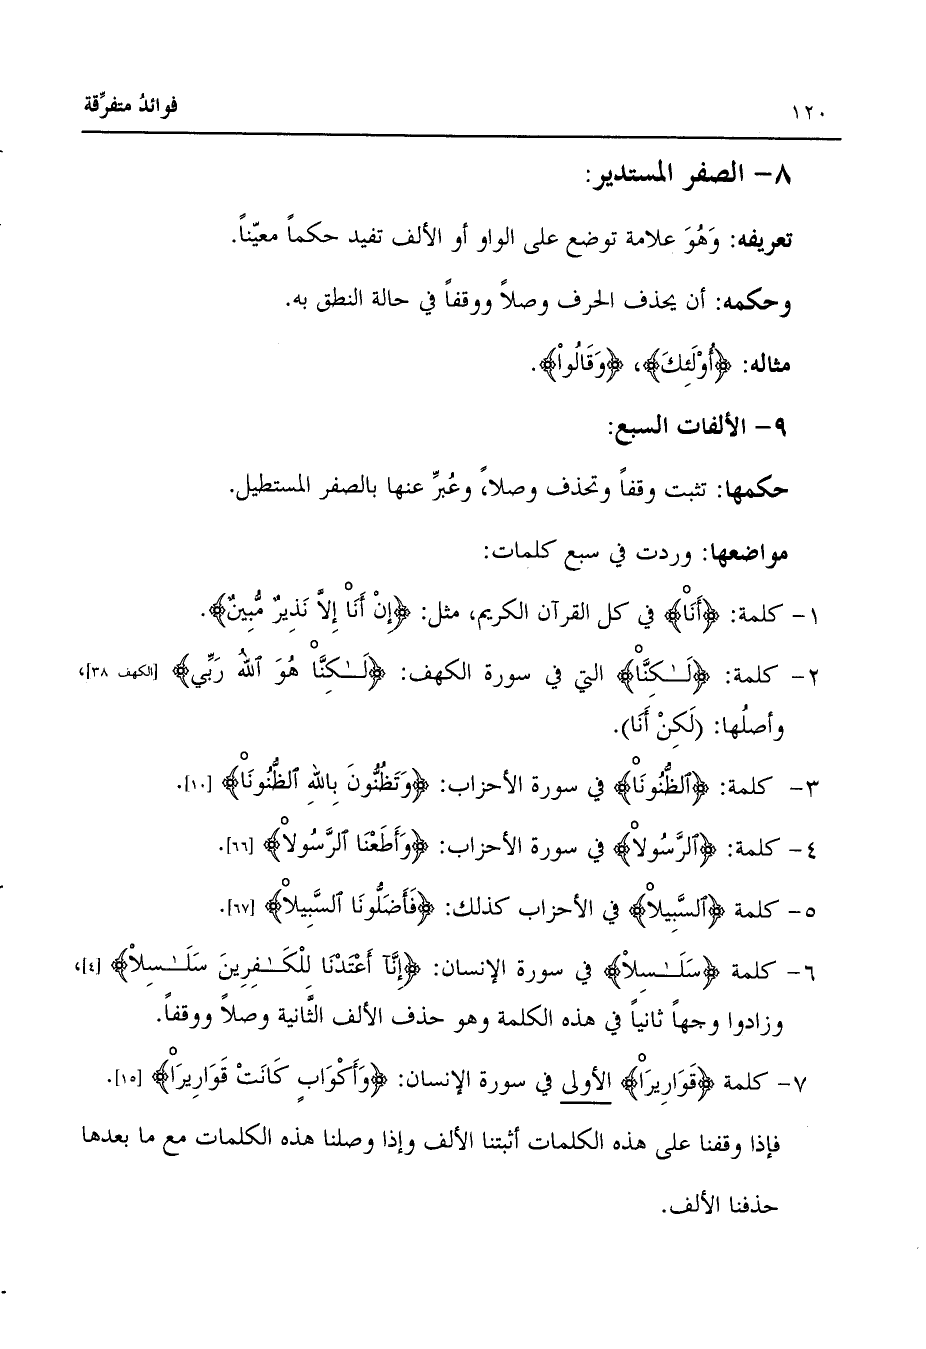 ١٢٠ فوائدُ متفرِّقة
٨- الصفر المستدير:
تعريفه: وَهُوَ علامة توضع على الواو أو الألف تفيد حكماً معيّناً.
وحكمه: أن يحذف الحرف وصلاً ووقفاً في حالة النطق به.
مثاله: ﴿أُوْلَئِكَ﴾، ﴿وَقَالُواْ﴾.
٩- الألفات السبع:
حكمها: تثبت وقفاً وتحذف وصلاً، وعُبرِّ عنها بالصفر المستطيل.
مواضعها: وردت في سبع كلمات:
١- كلمة: ﴿أَنَا۠﴾ في كل القرآن الكريم، مثل: ﴿إِنْ أَنَا۠ إِلاَّ نَذِيرٌ مُّبِينٌ﴾.
٢- كلمة: ﴿لَـٰكِنَّا۠﴾ التي في سورة الكهف: ﴿لَـٰكِنَّا۠ هُوَ ٱللَّهُ رَبِّي﴾ [الكهف ٣٨]،
وأصلُها: (لَكِنْ أَنَا).
٣- كلمة: ﴿ٱلظُّنُونَا۠﴾ في سورة الأحزاب: ﴿وَتَظُنُّونَ بِاللَّهِ ٱلظُّنُونَا۠﴾ [١٠].
٤- كلمة: ﴿ٱلرَّسُولا۠﴾ في سورة الأحزاب: ﴿وَأَطَعْنَا ٱلرَّسُولا۠﴾ [٦٦].
٥- كلمة ﴿ٱلسَّبِيلا۠﴾ في الأحزاب كذلك: ﴿فَأَضَلُّونَا ٱلسَّبِيلا۠﴾ [٦٧].
٦- كلمة ﴿سَلَـٰسِلاْ﴾ في سورة الإنسان: ﴿إِنَّآ أَعْتَدْنَا لِلْكَـٰفِرِينَ سَلَـٰسِلاْ﴾ [٤]،
وزادوا وجهاً ثانياً في هذه الكلمة وهو حذف الألف الثَّانية وصلاً ووقفاً.
٧- كلمة ﴿قَوَارِيرَا۠﴾ الأولى في سورة الإنسان: ﴿وَأَكْوَابٍ كَانَتْ قَوَارِيرَا۠﴾ [١٥].
فإذا وقفنا على هذه الكلمات أثبتنا الألف وإذا وصلنا هذه الكلمات مع ما بعدها
حذفنا الألف.